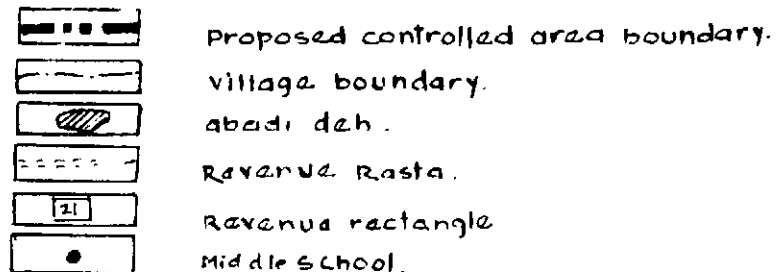 Proposed controlled area boundary.
Village boundary.
abadi deh.
Revenue Rasta.
21 Revenue rectangle
Middle School.